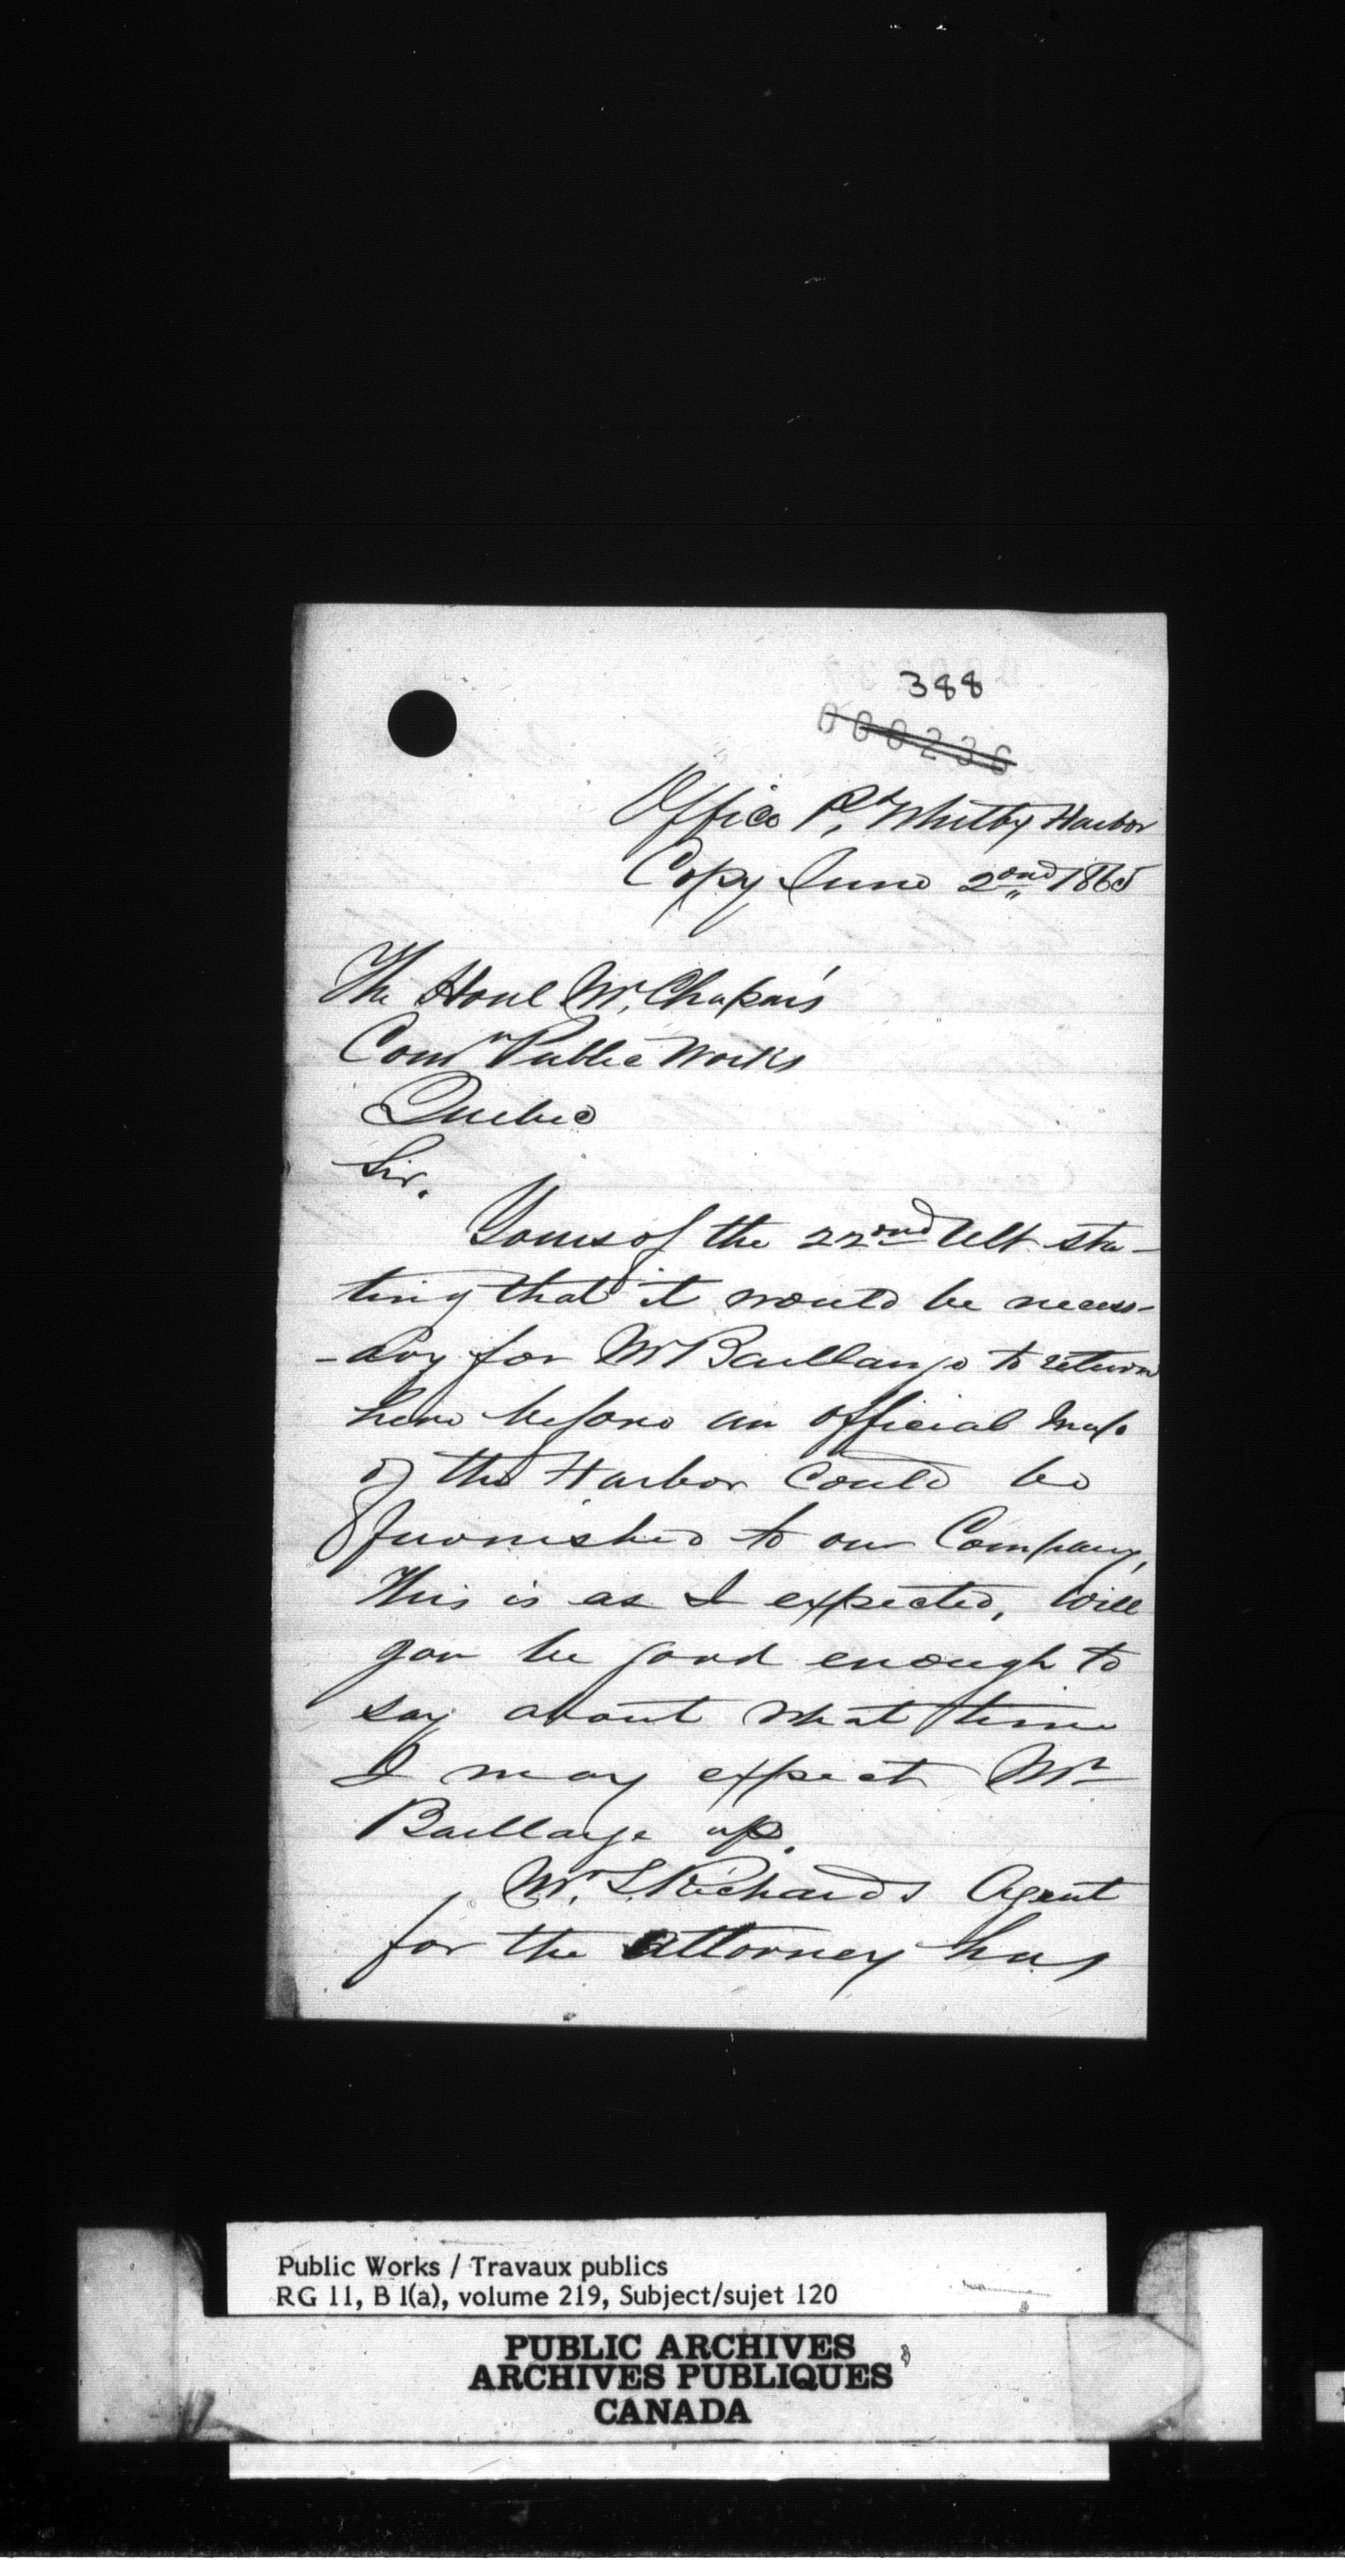 388
000236
Office Pt Whitby Harbor
Copy June 2ond 1865
The Honl Mr. Chapais
Comr Public Works
Quebec
Sir.
Yours of the 22ond Ult. sta-
ting that it would be necess-
-ary for Mr Baillarge to return
here before an official Map
of the Harbor could be
furnished to our Company,
This is as I expected, Will
you be good enough to
say about what time
I may expect Mr
Baillarge up.
Mr. S. Richards Agent
for the Attorney has
Public Works / Travaux publics
RG 11, B 1(a), volume 219, Subject/sujet 120
PUBLIC ARCHIVES
ARCHIVES PUBLIQUES
CANADA